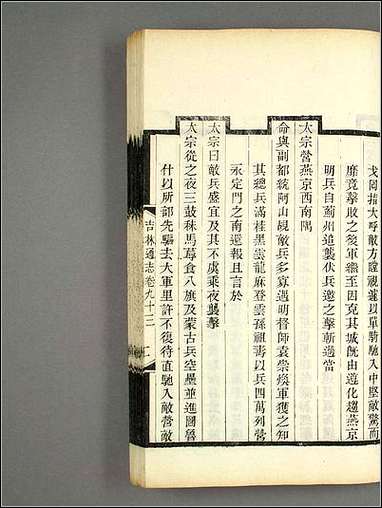 戈陷陣大呼敵方瞠視瀘以單騎入中堅敵驚而
靡竟擊敗之後軍繼至因克其城旣由遵化趨燕京
明兵自薊州追襲伏兵邀之擊斬過當
太宗營燕京西南隅
命與副都統阿山覘敵兵多寡遇明督師袁崇煥軍獲之知
其總兵滿桂黑雲龍麻登雲孫祖壽以兵四萬列營
永定門之南還報且言於
太宗曰敵兵盛宜及其不虞乘夜襲擊
太宗從之夜三鼓秣馬蓐食八旗及蒙古兵空壘並進圖魯
什以所部先驅去大軍里許不復待直馳入敵營敵
吉林通志卷九十三